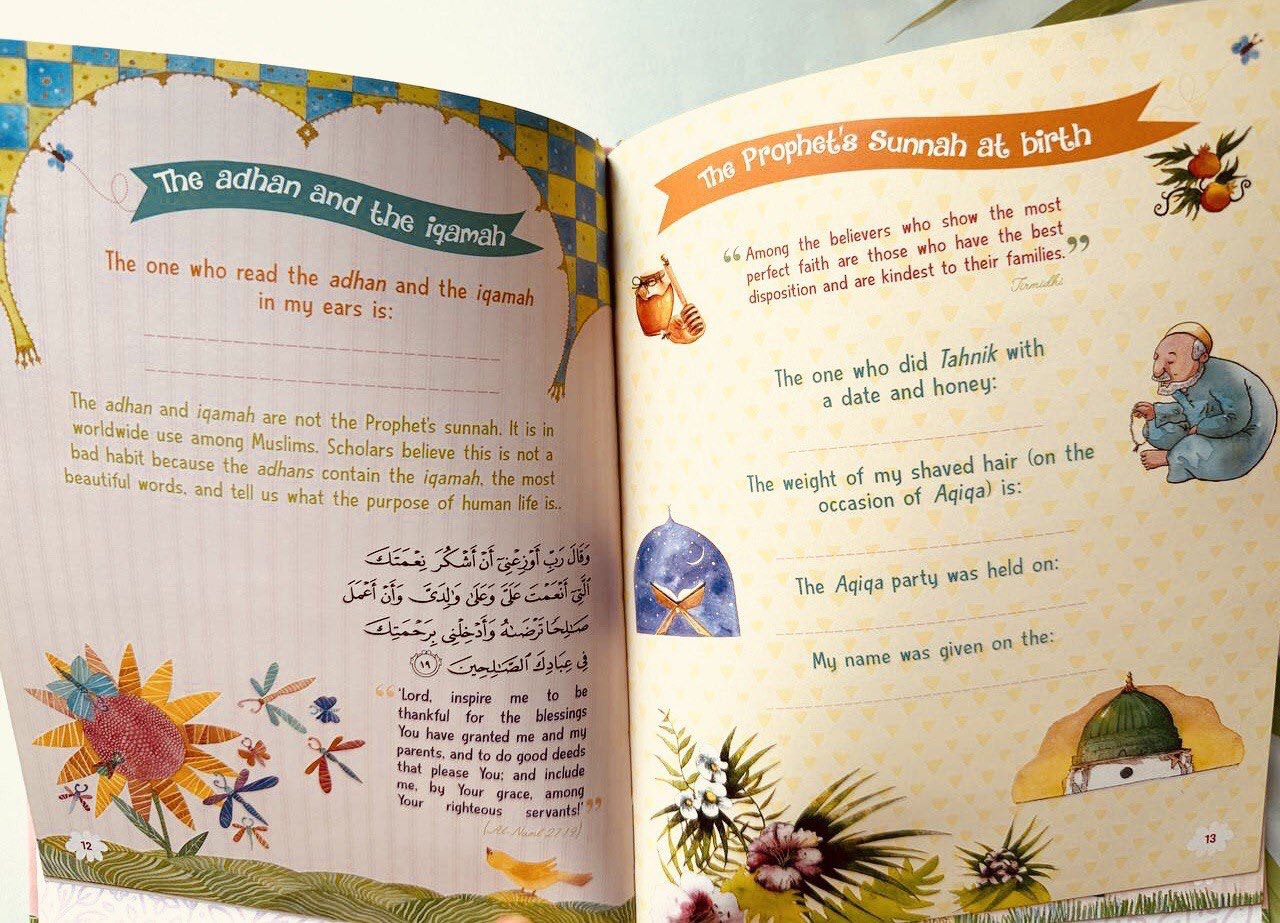 The adhan and the iqamah
The one who read the adhan and the iqamah
in my ears is:
The adhan and iqamah are not the Prophet's sunnah. It is in
worldwide use among Muslims. Scholars believe this is not a
bad habit because the adhans contain the iqamah, the most
beautiful words, and tell us what the purpose of human life is..
وَقَالَ رَبِّ أَوْزِعْنِىٓ أَنْ أَشْكُرَ نِعْمَتَكَ
ٱلَّتِىٓ أَنْعَمْتَ عَلَىَّ وَعَلَىٰ وَٰلِدَىَّ وَأَنْ أَعْمَلَ
صَٰلِحًا تَرْضَىٰهُ وَأَدْخِلْنِى بِرَحْمَتِكَ
فِى عِبَادِكَ ٱلصَّٰلِحِينَ ١٩
“'Lord, inspire me to be
thankful for the blessings
You have granted me and my
parents, and to do good deeds
that please You; and include
me, by Your grace, among
Your righteous servants!'”
(Al-Naml 27:19)
12
The Prophet's Sunnah at birth
“Among the believers who show the most
perfect faith are those who have the best
disposition and are kindest to their families.”
Tirmidhi
The one who did Tahnik with
a date and honey:
The weight of my shaved hair (on the
occasion of Aqiqa) is:
The Aqiqa party was held on:
My name was given on the:
13